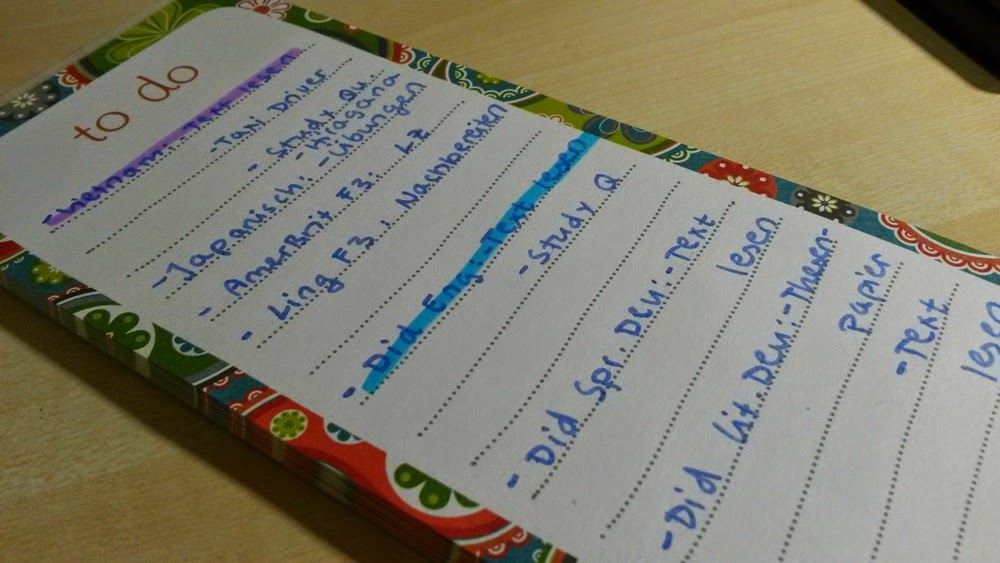 to do
- Vietnam: Text lesen
- Taxi Driver
- Study Qu.
- Japanisch: - Hiragana
- Übungen
- AmerBrit F3: LZ
- Ling F3: Nachbereiten
- Did Eng.-Text lesen
- Study Q
- Did Spr. Deu: - Text
lesen
- Did Lit. Deu: - Thesen-
papier
- Text
lesen